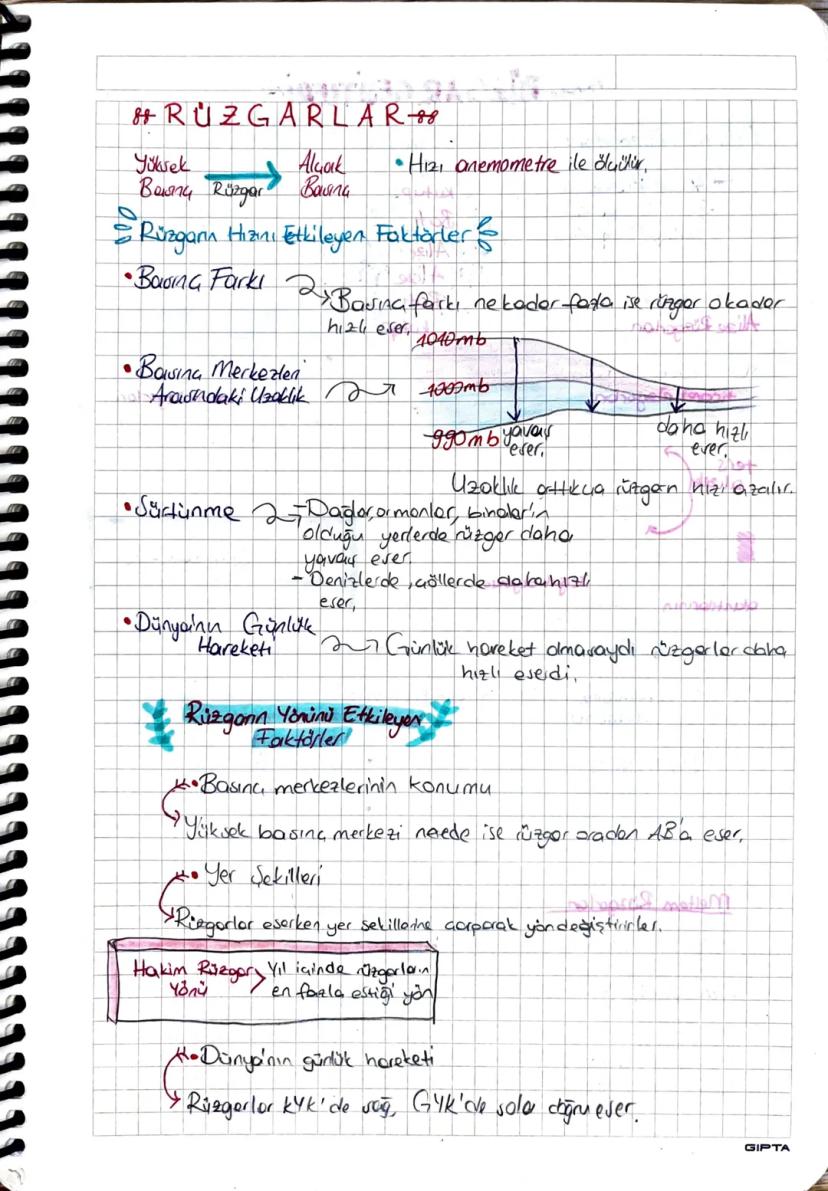 RÜZGARLAR
Yüksek Basınç Rüzgar Alçak Basınç
• Hızı anemometre ile ölçülür.
Rüzgarın Hızını Etkileyen Faktörler
• Basınç Farkı
Basınç farkı ne kadar fazla ise rüzgar o kadar
hızlı eser.
1010mb
• Basınç Merkezleri
Arasındaki Uzaklık
1000mb
990mb yavaş
eser.
daha hızlı
eser.
Uzaklık arttıkça rüzgarın hızı azalır.
• Sürtünme
- Dağlar, ormanlar, binalar'ın
olduğu yerlerde rüzgar daha
yavaş eser.
- Denizlerde, göllerde daha hızlı
eser.
• Dünya'nın Günlük
Hareketi
Günlük hareket olmasaydı rüzgarlar daha
hızlı eserdi.
Rüzgarın Yönünü Etkileyen
Faktörler
• Basınç merkezlerinin konumu
Yüksek basınç merkezi nerede ise rüzgar oradan AB'a eser.
• Yer Şekilleri
Rüzgarlar eserken yer şekillerine çarparak yön değiştirirler.
Hakim Rüzgar
Yönü
Yıl içinde rüzgarların
en fazla estiği yön
• Dünya'nın günlük hareketi
Rüzgarlar KYK'de sağ, GYK'de sola doğru eser.
GIPTA